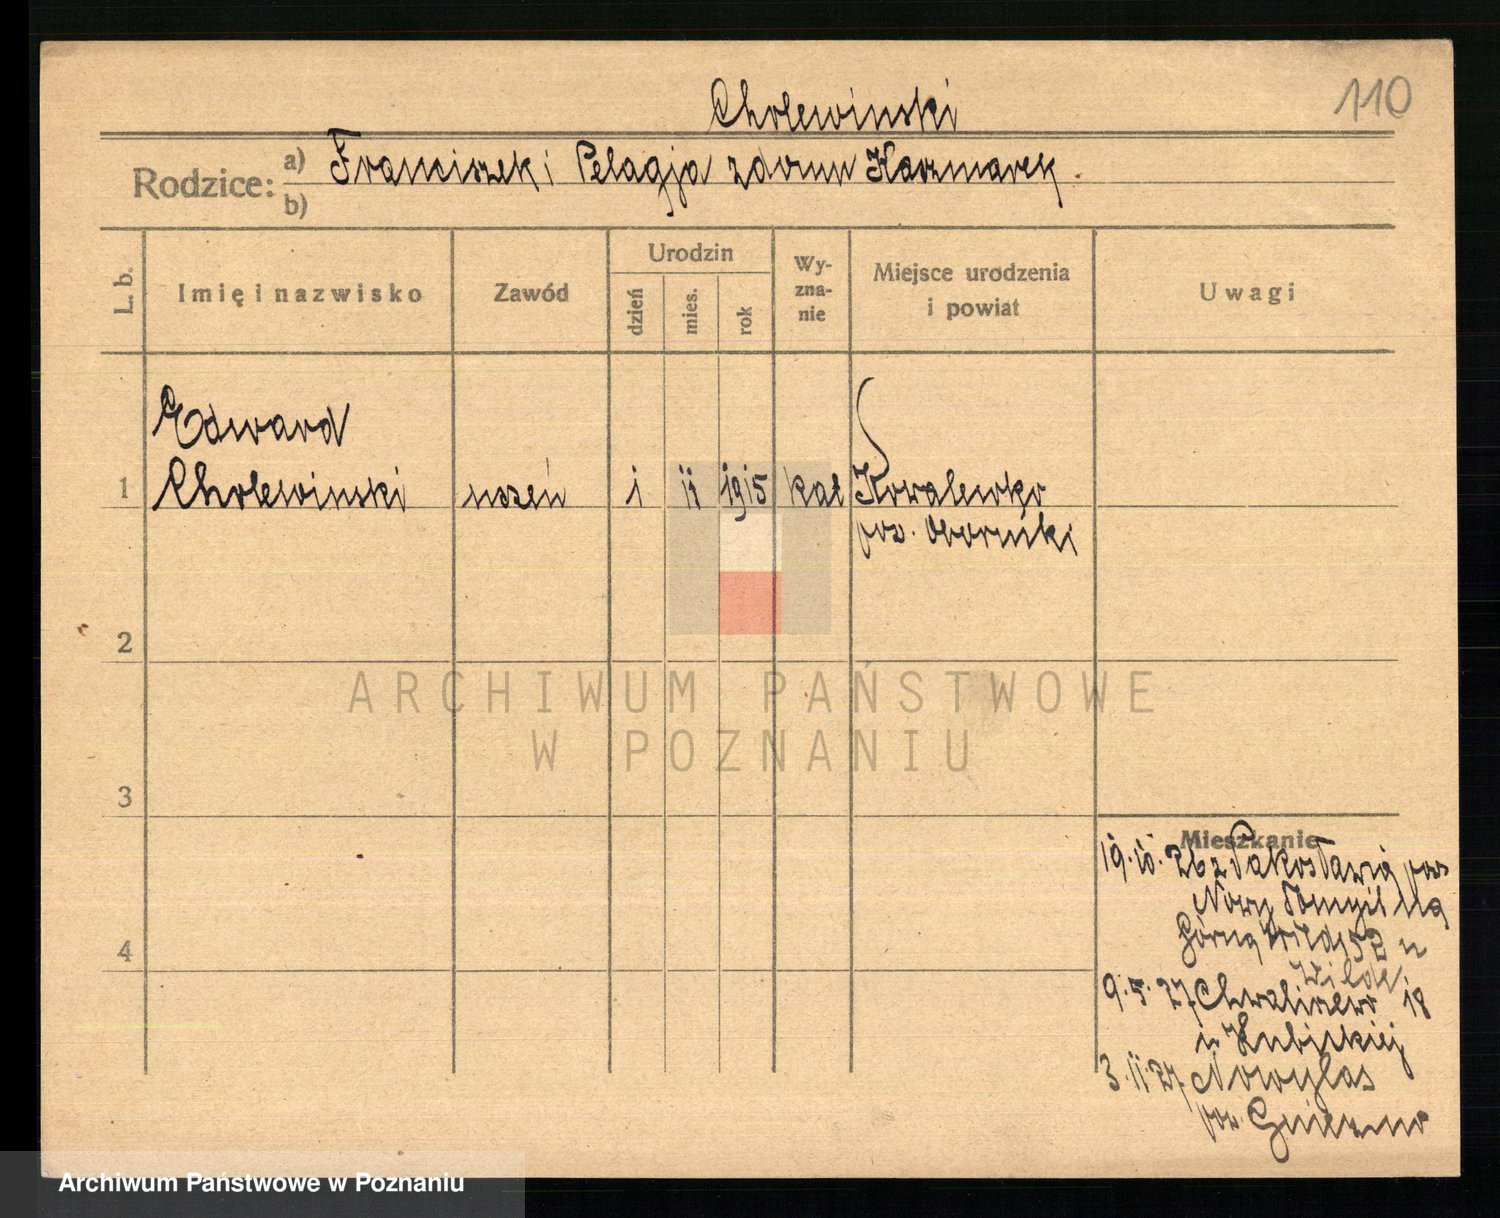 110
Cholewinski
Rodzice:
a) Franciszek i Pelagja z domu Kaczmarek.
b)
L. b.
Imię i nazwisko
Zawód
Urodzin
dzień
mies.
rok
Wy-
zna-
nie
Miejsce urodzenia
i powiat
Uwagi
Edward
1 Cholewinski uczeń 1 11 1915 kat Kowalewko
pow. Oborniki
2
3
4
Mieszkanie
19.10.26 z Pakosławia pow
Nowy Tomyśl na
Górną Wildę 52 u
Wilde
9.5.27 Chwaliszewo 18
u Kubickiej
3.11.27 Nowylas
pow. Gniezno
ARCHIWUM PAŃSTWOWE
W POZNANIU
Archiwum Państwowe w Poznaniu